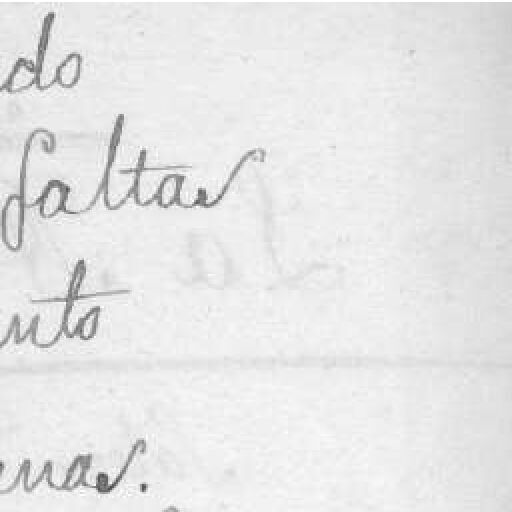 do
faltar
nto
enar.